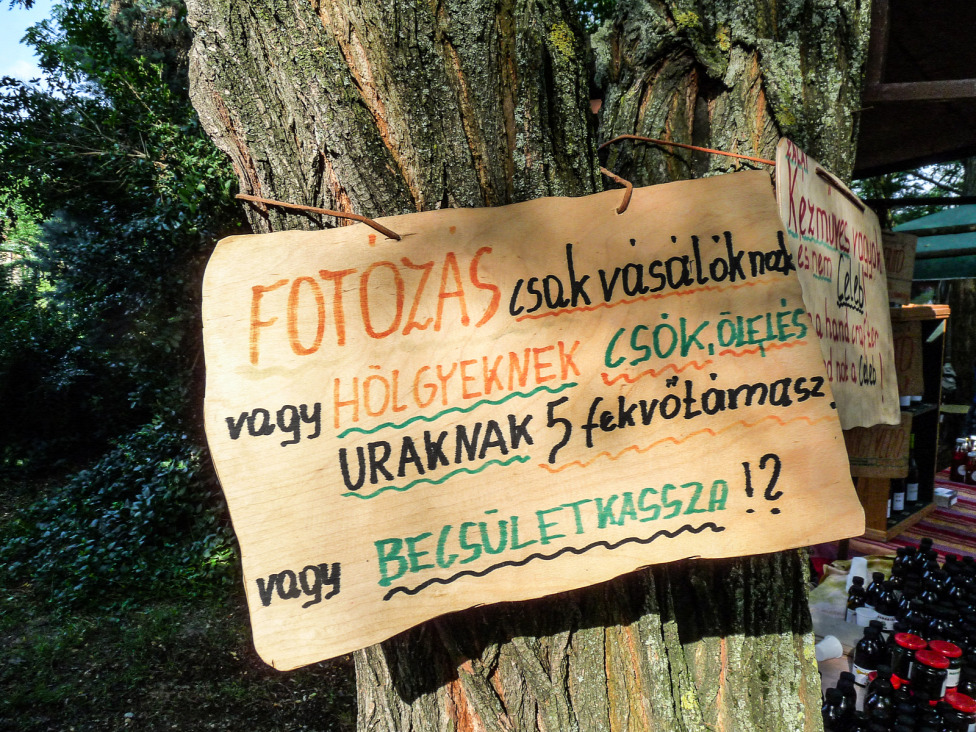 FOTÓZÁS csak vásálóknak
vagy HÖLGYEKNEK CSÓK, ÖLELÉS
URAKNAK 5 fekvőtámasz.
vagy BECSÜLETKASSZA !?
Kézműves vagyok
és nem Celeb!
a hand crafter
nd not a Celeb!